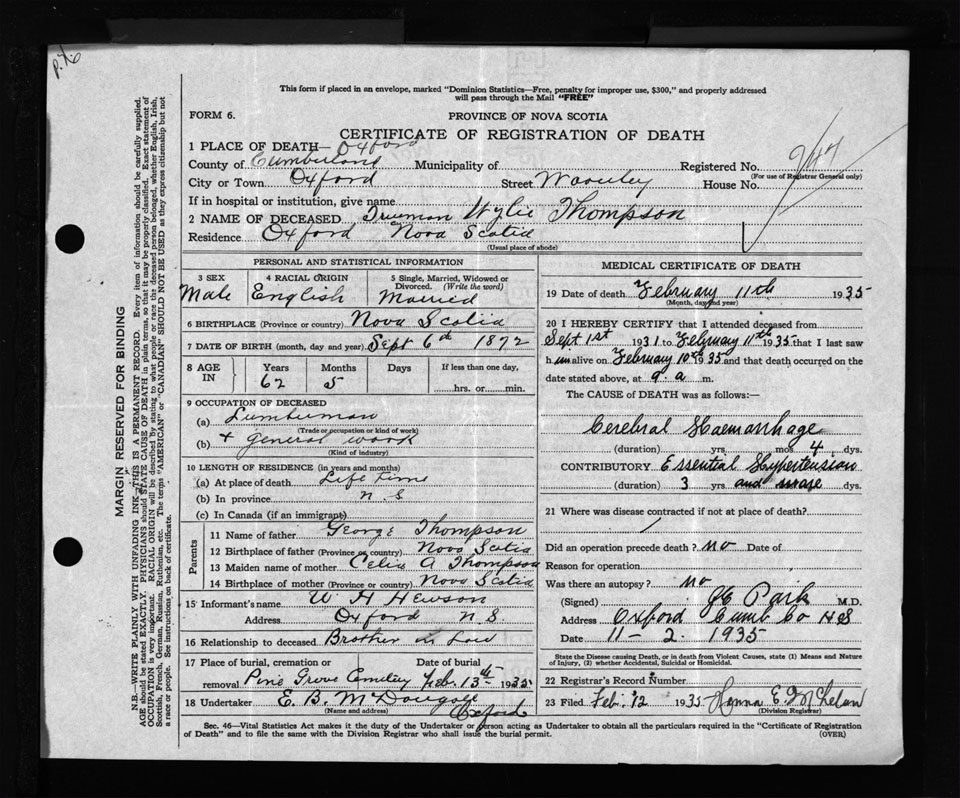 P.X.6
This form if placed in an envelope, marked "Dominion Statistics—Free, penalty for improper use, $300," and properly addressed
will pass through the Mail "FREE"
FORM 6.
PROVINCE OF NOVA SCOTIA
CERTIFICATE OF REGISTRATION OF DEATH
1 PLACE OF DEATH— Oxford
County of Cumberland Municipality of Registered No.
(For use of Registrar General only)
City or Town Oxford Street Waverley House No.
If in hospital or institution, give name
2 NAME OF DECEASED Trueman Wylie Thompson
Residence Oxford Nova Scotia
(Usual place of abode)
PERSONAL AND STATISTICAL INFORMATION
3 SEX 4 RACIAL ORIGIN 5 Single, Married, Widowed or
Divorced. (Write the word)
Male English Married
6 BIRTHPLACE (Province or country) Nova Scotia
7 DATE OF BIRTH (month, day and year) Sept 6th 1872
8 AGE IN Years Months Days If less than one day,
62 5 hrs. or min.
9 OCCUPATION OF DECEASED
(a) Lumberman
(Trade or occupation or kind of work)
(b) + general work
(Kind of industry)
10 LENGTH OF RESIDENCE (in years and months)
(a) At place of death Life time
(b) In province N S
(c) In Canada (if an immigrant)
Parents
11 Name of father George Thompson
12 Birthplace of father (Province or country) Nova Scotia
13 Maiden name of mother Celia A Thompson
14 Birthplace of mother (Province or country) Nova Scotia
15 Informant's name W H Hewson
Address Oxford N S
16 Relationship to deceased Brother in Law
17 Place of burial, cremation or Date of burial
removal Pine Grove Cemetery Feb. 13th 1935
18 Undertaker E. B. McDougall
Oxford
(Name and address)
MEDICAL CERTIFICATE OF DEATH
19 Date of death February 11th 1935
(Month, day and year)
20 I HEREBY CERTIFY that I attended deceased from
Sept 1st 1931 to February 11th 1935 that I last saw
him alive on February 10th 1935 and that death occurred on the
date stated above, at 9. a m.
The CAUSE of DEATH was as follows:—
Cerebral Haemorrhage
(duration) yrs. mos. 4 dys.
CONTRIBUTORY Essential Hypertension
(duration) 3 yrs. and more dys.
21 Where was disease contracted if not at place of death?
Did an operation precede death? No Date of
Reason for operation
Was there an autopsy? No
(Signed) Park M.D.
Address Oxford Cumb Co N S
Date 11- 2. 1935
State the Disease causing Death, or in death from Violent Causes, state (1) Means and Nature
of Injury, (2) whether Accidental, Suicidal or Homicidal.
22 Registrar's Record Number
23 Filed Feb. 12 1935
(Division Registrar)
Sec. 46—Vital Statistics Act makes it the duty of the Undertaker or person acting as Undertaker to obtain all the particulars required in the "Certificate of Registration
of Death" and to file the same with the Division Registrar who shall issue the burial permit. (OVER)
MARGIN RESERVED FOR BINDING
N.B.—WRITE PLAINLY WITH UNFADING INK—THIS IS A PERMANENT RECORD. Every item of information should be carefully supplied.
AGE should be stated EXACTLY. PHYSICIANS should STATE CAUSE OF DEATH in plain terms, so that it may be properly classified. Exact statement of
OCCUPATION is very important. RACIAL ORIGIN will be described by stating to what people or race the deceased person belonged, whether English, Irish,
Scottish, French, German, Russian, Ruthenian, etc. The terms "AMERICAN" or "CANADIAN" SHOULD NOT BE USED as they express citizenship but not
a race or people. See instructions on back of certificate.